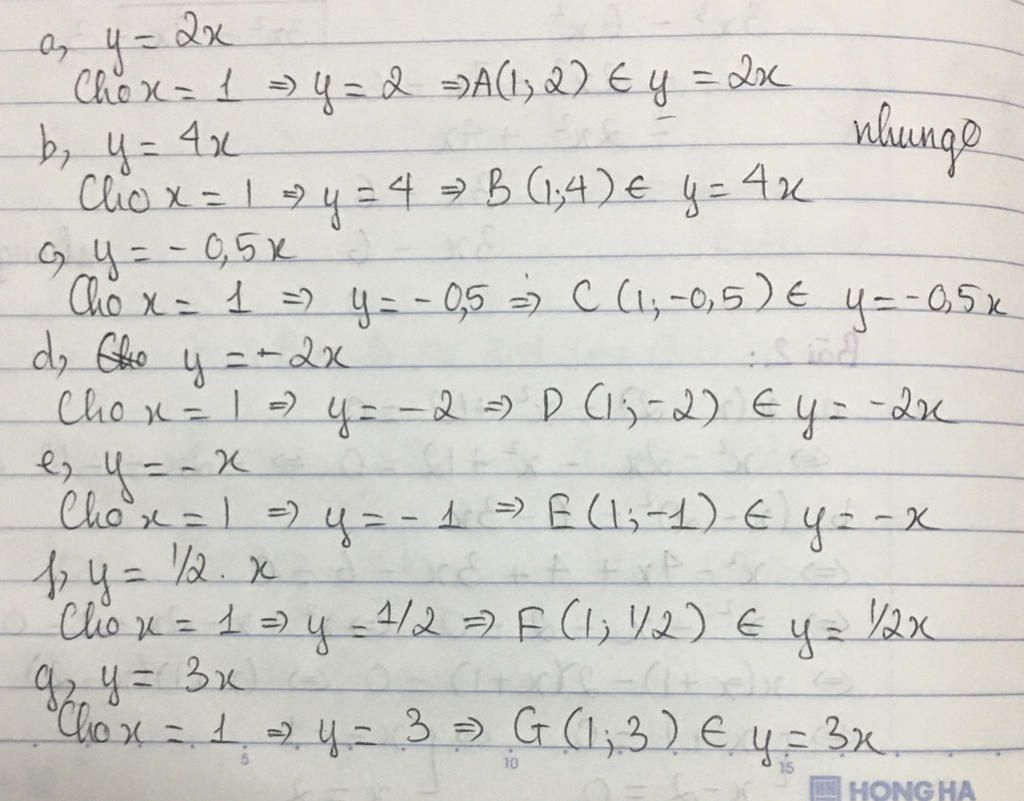 a, y = 2x
Cho x = 1 ⇒ y = 2 ⇒ A(1; 2) ∈ y = 2x
b, y = 4x
nhungo
Cho x = 1 ⇒ y = 4 ⇒ B (1;4) ∈ y = 4x
c, y = - 0,5x
Cho x = 1 ⇒ y = - 0,5 ⇒ C (1; -0,5) ∈ y = -0,5x
d, y = - 2x
Cho x = 1 ⇒ y = - 2 ⇒ D (1; -2) ∈ y = -2x
e, y = - x
Cho x = 1 ⇒ y = - 1 ⇒ E (1; -1) ∈ y = - x
f, y = 1/2 . x
Cho x = 1 ⇒ y = 1/2 ⇒ F (1; 1/2) ∈ y = 1/2x
g, y = 3x
Cho x = 1 ⇒ y = 3 ⇒ G (1; 3) ∈ y = 3x
5 10 15
HONG HA